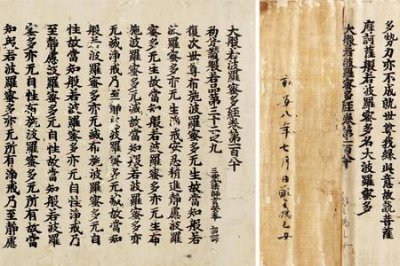 多勢力亦不成就世尊我緣此意故說菩薩
摩訶薩般若波羅蜜多名大波羅蜜多
大般若波羅蜜多經卷第一百八十
八年七月日
大般若波羅蜜多經卷第一百八十
初分讚般若品第三十二之九 三藏法師玄奘奉 詔譯
復次世尊布施波羅蜜多无生故當知般若
波羅蜜多亦无生淨戒安忍精進靜慮波羅
蜜多无生故當知般若波羅蜜多亦无生布
施波羅蜜多无滅故當知般若波羅蜜多亦
无滅淨戒乃至靜慮波羅蜜多无滅故當知
般若波羅蜜多亦无滅布施波羅蜜多无自
性故當知般若波羅蜜多亦无自性淨戒乃
至靜慮波羅蜜多无自性故當知般若波羅
蜜多亦无自性布施波羅蜜多无所有故當
知般若波羅蜜多亦无所有淨戒乃至靜慮